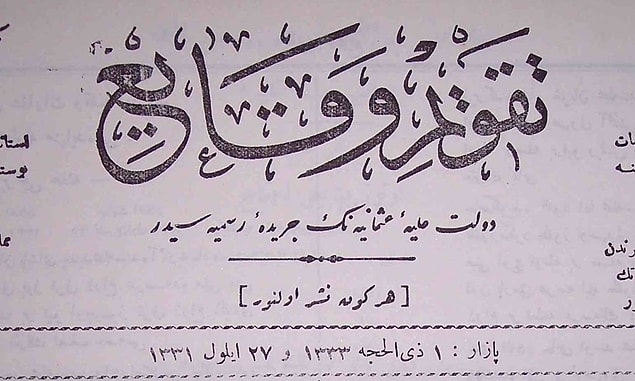 تقویم وقایع
دولت علیۀ عثمانیه نك جریدۀ رسمیه سیدر
[ هر كون نشر اولنور ]
پازار : ١ ذی الحجه ١٣٣٣ و ٢٧ ایلول ١٣٣١